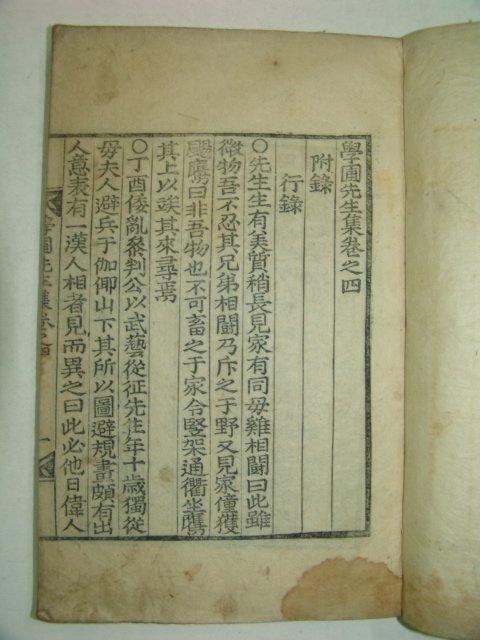 學圃先生集卷之四
附錄
行錄
〇先生生有美質稍長見家有同毋雞相鬪曰此雖
微物吾不忍其兄弟相鬪乃斥之于野又見家僮獲
鷹曰非吾物也不可畜之于家令竪架通衢坐鷹
其上以竢其來尋焉
〇丁酉倭亂叅判公以武藝從征先生年十歲獨從
毋夫人避兵于伽倻山下其所以圖避規畫頗有出
人意表有一漢人相者見而異之曰此必他日偉人
學圃先生集卷之四
一